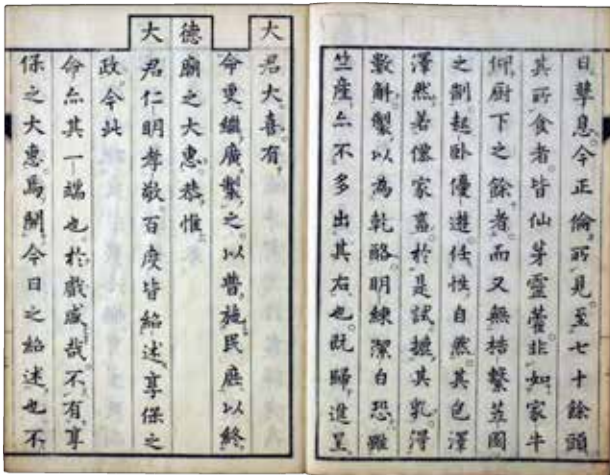 日孳息今正倫所見至七十餘頭
其所食者皆仙芽靈藿非如家牛
仰厨下之餘者而又無梏繫苙圈
之制起卧優遊任性自然其色澤
澤然若儇家畜於是試搋其乳得
數斛製以為乾酪明練潔白恐雖
竺産亦不多出其右也既歸進呈
大君大喜有
命更繼廣製之以普施民庶以終
德廟之大惠恭惟
大君仁明孝敬百度皆紹述享保之
政令此
命亦其一端也於戲盛哉不有享
保之大惠焉開今日之紹述也不